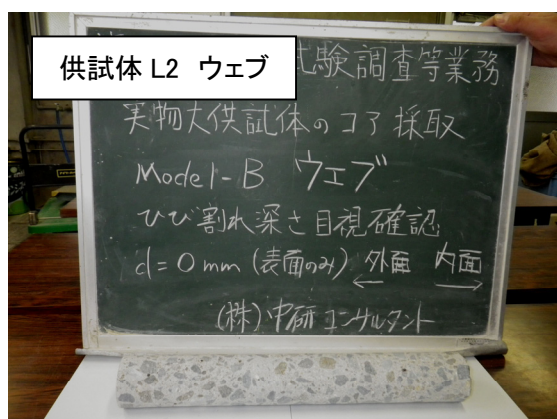 供試体 L2 ウェブ
試験調査等業務
実物大供試体のコア採取
Model-B ウェブ
ひび割れ深さ目視確認
d=0mm (表面のみ) 外面 内面
← →
(株)中研コンサルタント